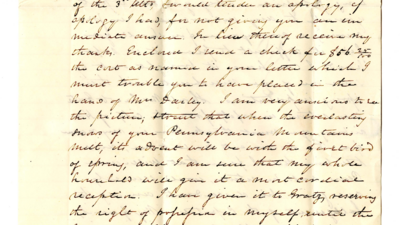 of the 3d Ulto I would tender an apology, if
apology I had, for not giving you an im
mediate answer. In lieu thereof receive my
thanks. Enclosed I send a check for $56
the cost as named in your letter which I
must trouble you to have placed in the
hand of Mr Darley. I am very anxious to see
the picture, & trust that when the everlasting
snows of your Pennsylvania Mountains
melt, it's advent will be with the first bird
of spring, and I am sure that my whole
household will give it a most cordial
reception. I have given it to Gratz, reserving
the right of possession in myself until the